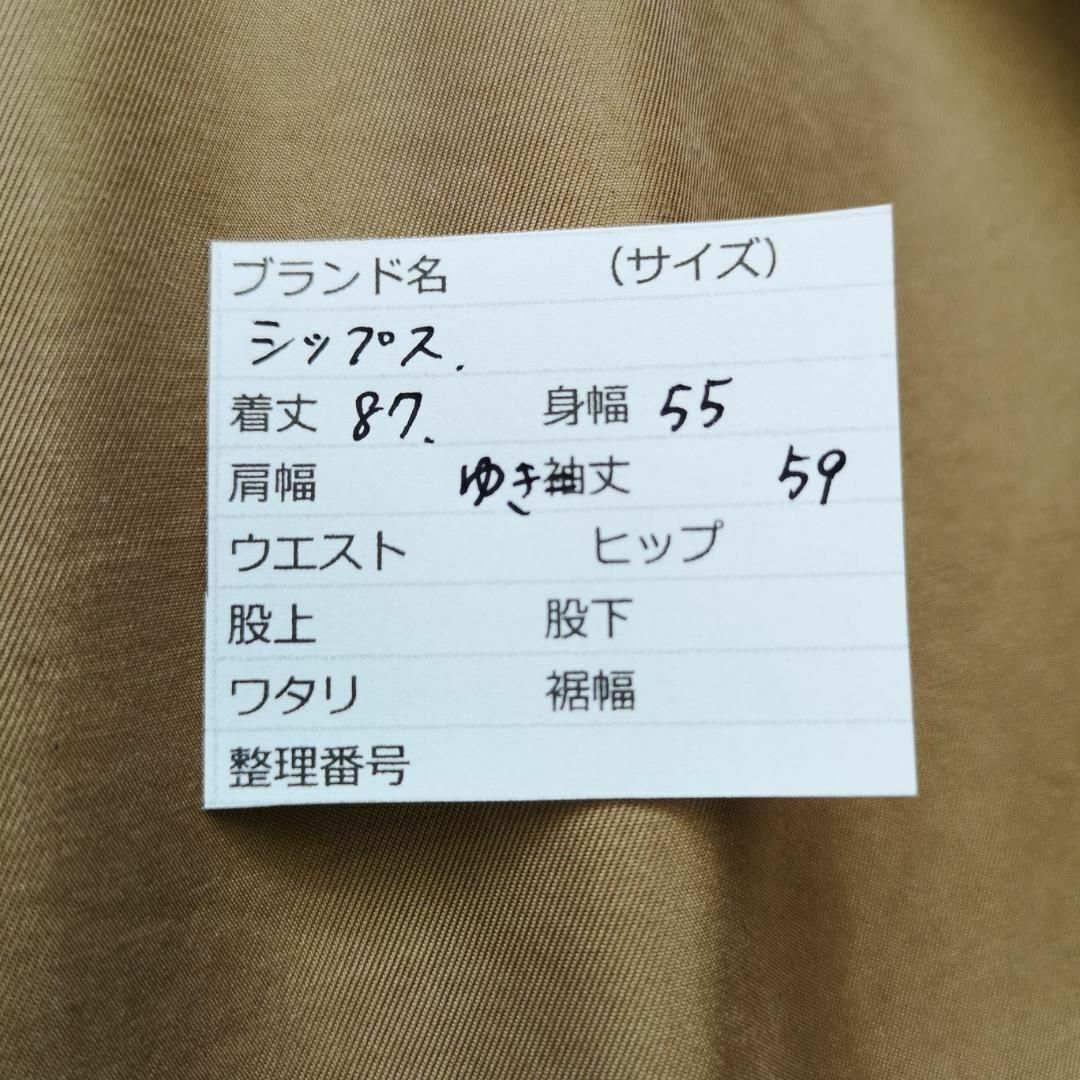 ブランド名 (サイズ)
シップス.
着丈 87. 身幅 55
肩幅 ゆき袖丈 59
ウエスト ヒップ
股上 股下
ワタリ 裾幅
整理番号